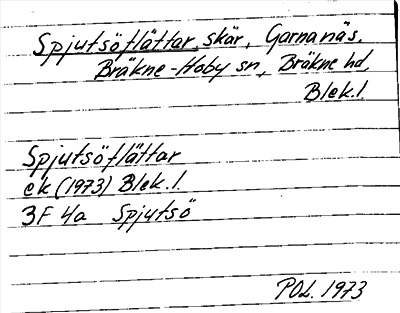 Spjutsöflättar, skär, Garnanäs.
Bräkne-Hoby sn, Bräkne hd,
Blek.l.
Spjutsöflättar
ek (1973) Blek.l.
3F 4a Spjutsö
POL. 1973